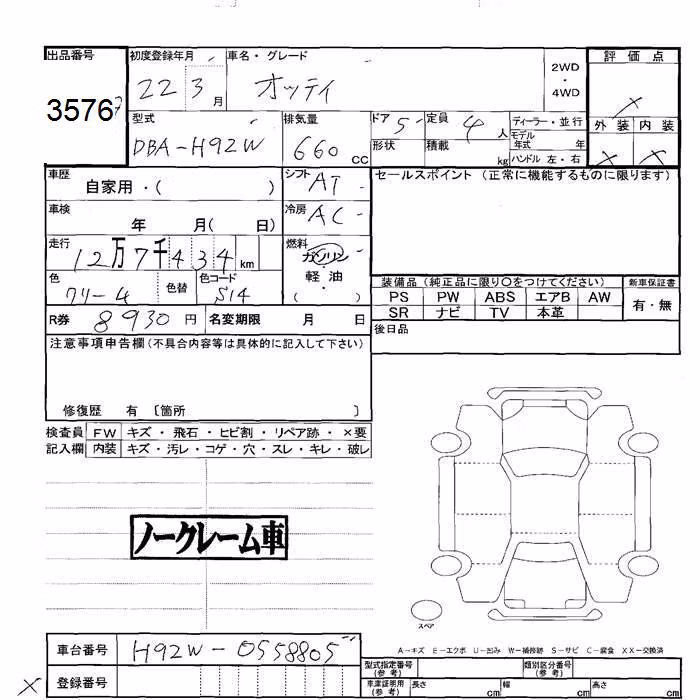 出品番号 初度登録年月 車名・グレード 評価点
22 3月 オッティ 2WD・4WD ×
3576
型式 排気量 ドア 5 定員 4人 ディーラー・並行 外装 内装
DBA-H92W 660cc 形状 積載 kg モデル年式 年
ハンドル 左・右 × ×
車歴 自家用・( ) シフト AT セールスポイント (正常に機能するものに限ります)
車検 年 月( 日) 冷房 AC
走行 12万7千434km 燃料 ガソリン・軽油( )
色 クリーム 色替 色コード S14
装備品(純正品に限り○をつけてください) 新車保証書
PS PW ABS エアB AW 有・無
SR ナビ TV 本革
R券 8930円 名変期限 月 日 後日品
注意事項申告欄(不具合内容等は具体的に記入して下さい)
修復歴 有 〔箇所 〕
検査員 FW キズ・飛石・ヒビ割・リペア跡・×要
記入欄 内装 キズ・汚レ・コゲ・穴・スレ・キレ・破レ
ノークレーム車
スペア
A-キズ E-エクボ U-凹み W-補修跡 S-サビ C-腐食 XX-交換済
車台番号 H92W-0558805
型式指定番号(参考) 類別区分番号(参考)
× 登録番号
車庫証明用(参考) 長さ cm 幅 cm 高さ cm